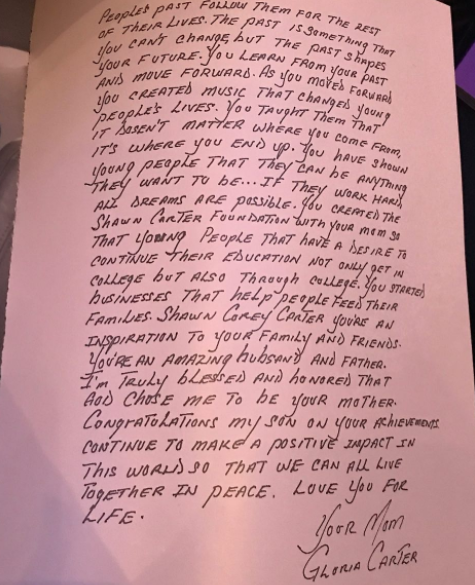 PEOPLE'S PAST FOLLOW THEM FOR THE REST
OF THEIR LIVES. THE PAST IS SOMETHING THAT
YOU CAN'T CHANGE, BUT THE PAST SHAPES
YOUR FUTURE. YOU LEARN FROM YOUR PAST
AND MOVE FORWARD. AS YOU MOVED FORWARD
YOU CREATED MUSIC THAT CHANGED YOUNG
PEOPLE'S LIVES. YOU TAUGHT THEM THAT
IT DOSEN'T MATTER WHERE YOU COME FROM,
IT'S WHERE YOU END UP. YOU HAVE SHOWN
YOUNG PEOPLE THAT THEY CAN BE ANYTHING
THEY WANT TO BE... IF THEY WORK HARD,
ALL DREAMS ARE POSSIBLE. YOU CREATED THE
SHAWN CARTER FOUNDATION WITH YOUR MOM SO
THAT YOUNG PEOPLE THAT HAVE A DESIRE TO
CONTINUE THEIR EDUCATION NOT ONLY GET IN
COLLEGE BUT ALSO THROUGH COLLEGE. YOU STARTED
BUSINESSES THAT HELP PEOPLE FEED THEIR
FAMILIES. SHAWN COREY CARTER YOU'RE AN
INSPIRATION TO YOUR FAMILY AND FRIENDS.
YOU'RE AN AMAZING HUBSAND AND FATHER.
I'M TRULY BLESSED AND HONORED THAT
GOD CHOSE ME TO BE YOUR MOTHER.
CONGRATULATIONS MY SON ON YOUR ACHIEVEMENTS
CONTINUE TO MAKE A POSITIVE IMPACT IN
THIS WORLD SO THAT WE CAN ALL LIVE
TOGETHER IN PEACE. LOVE YOU FOR
LIFE.
YOUR MOM
GLORIA CARTER